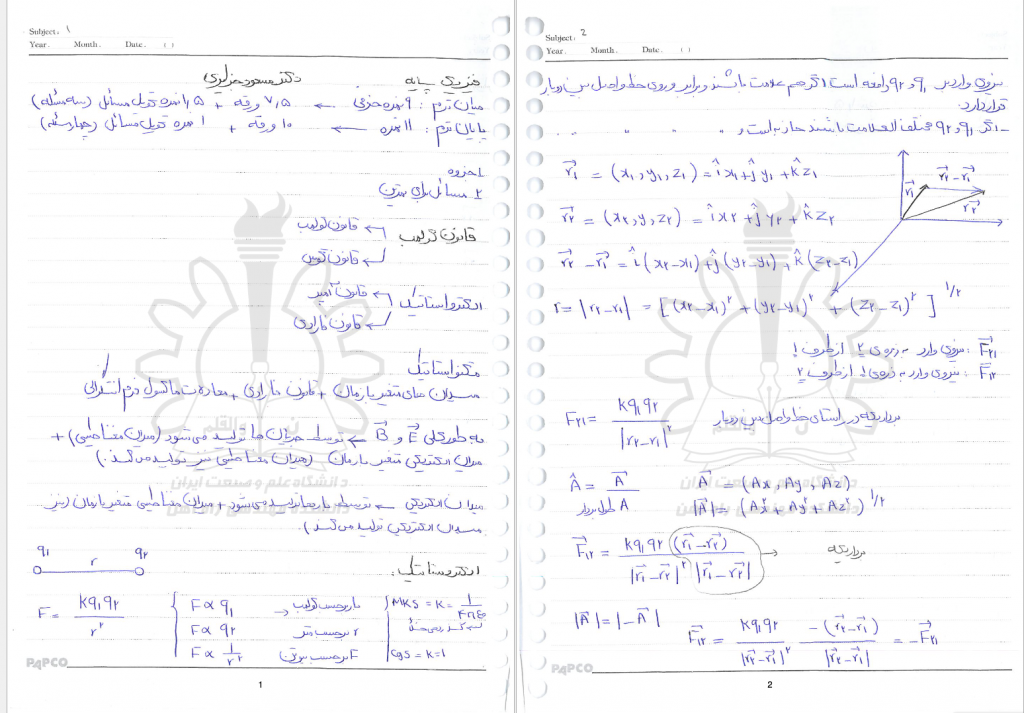 Subject: 1
Year. Month. Date. ( )
فیزیک پایه دکتر مسعود جزایری
میان ترم: ۹ نمره جزئی ← ۷,۵ ورقه + ۱,۵ نمره تحویل مسائل (سه مسئله)
پایان ترم: ۱۱ نمره ← ۱۰ ورقه + ۱ نمره تحویل مسائل (چهار مسئله)
۱ـ جزوه
۲ـ مسائل برای تمرین
قانون کولمب ← قانون کولمب
← قانون گوس
الکترواستاتیک ← قانون آمپر
← قانون فارادی
مگنواستاتیک
میدان های متغیر با زمان + قانون فارادی + معادلات ماکسول فرم انتگرالی
به طور کلی E و B ← توسط جریان ها تولید می شود (میدان مغناطیسی) +
میدان الکتریکی متغیر با زمان (میدان مغناطیسی نیز تولید می کند.)
میدان الکتریکی ← توسط بارها تولید می شود + میدان مغناطیسی متغیر با زمان (نیز
میدان الکتریکی تولید می کند.)
الکترواستاتیک:
q₁ r q₂
F = kq₁q₂ / r²
F ∝ q₁
F ∝ q₂
F ∝ 1/r²
بار برحسب کولمب
r برحسب متر
F برحسب نیوتن
MKS = K = 1/4πε
cgs = K=1
PAPCO
1
Subject: 2
Year. Month. Date. ( )
نیروی وارد بر q₁ و q₂ دافعه است اگر هم علامت باشند و برابر و روی خط واصل بین دو بار
قرار دارد.
- اگر q₁ و q₂ مختلف العلامت باشند جاذبه است و " " " "
r₁ = (x₁, y₁, z₁) = îx₁ + ĵy₁ + k̂z₁
r₂ = (x₂, y, z₂) = îx₂ + ĵy₂ + k̂z₂
r₂ - r₁ = î(x₂-x₁) + ĵ(y₂-y₁) + k̂(z₂-z₁)
r₁ r₂-r₁ r₂
r = |r₂-r₁| = [(x₂-x₁)² + (y₂-y₁)² + (z₂-z₁)²]^1/2
F₂₁: نیروی وارد به ذره ی ۲ از طرف ۱
F₁₂: نیروی وارد به ذره ی ۱ از طرف ۲
F₂₁ = kq₁q₂ / |r₂-r₁|² بردار یکه در راستای خط واصل بین دو بار
Â = A / A طول بردار
A = (Ax, Ay, Az)
|A| = (Ax² + Ay² + Az²)^1/2
F₁₂ = kq₁q₂ (r₁-r₂) / |r₁-r₂|² |r₁-r₂| → بردار یکه
|A| = |-A|
F₁₂ = kq₁q₂ / |r₂-r₁|² -(r₂-r₁) / |r₂-r₁| = -F₂₁
PAPCO
2
دانشگاه علم و صنعت ایران